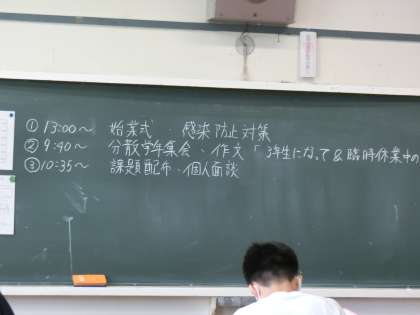 ① 13:00～ 始業式・感染防止対策
② 9:40～ 分散学年集会、作文「3年生になって&臨時休業中の
③ 10:35～ 課題配布・個人面談